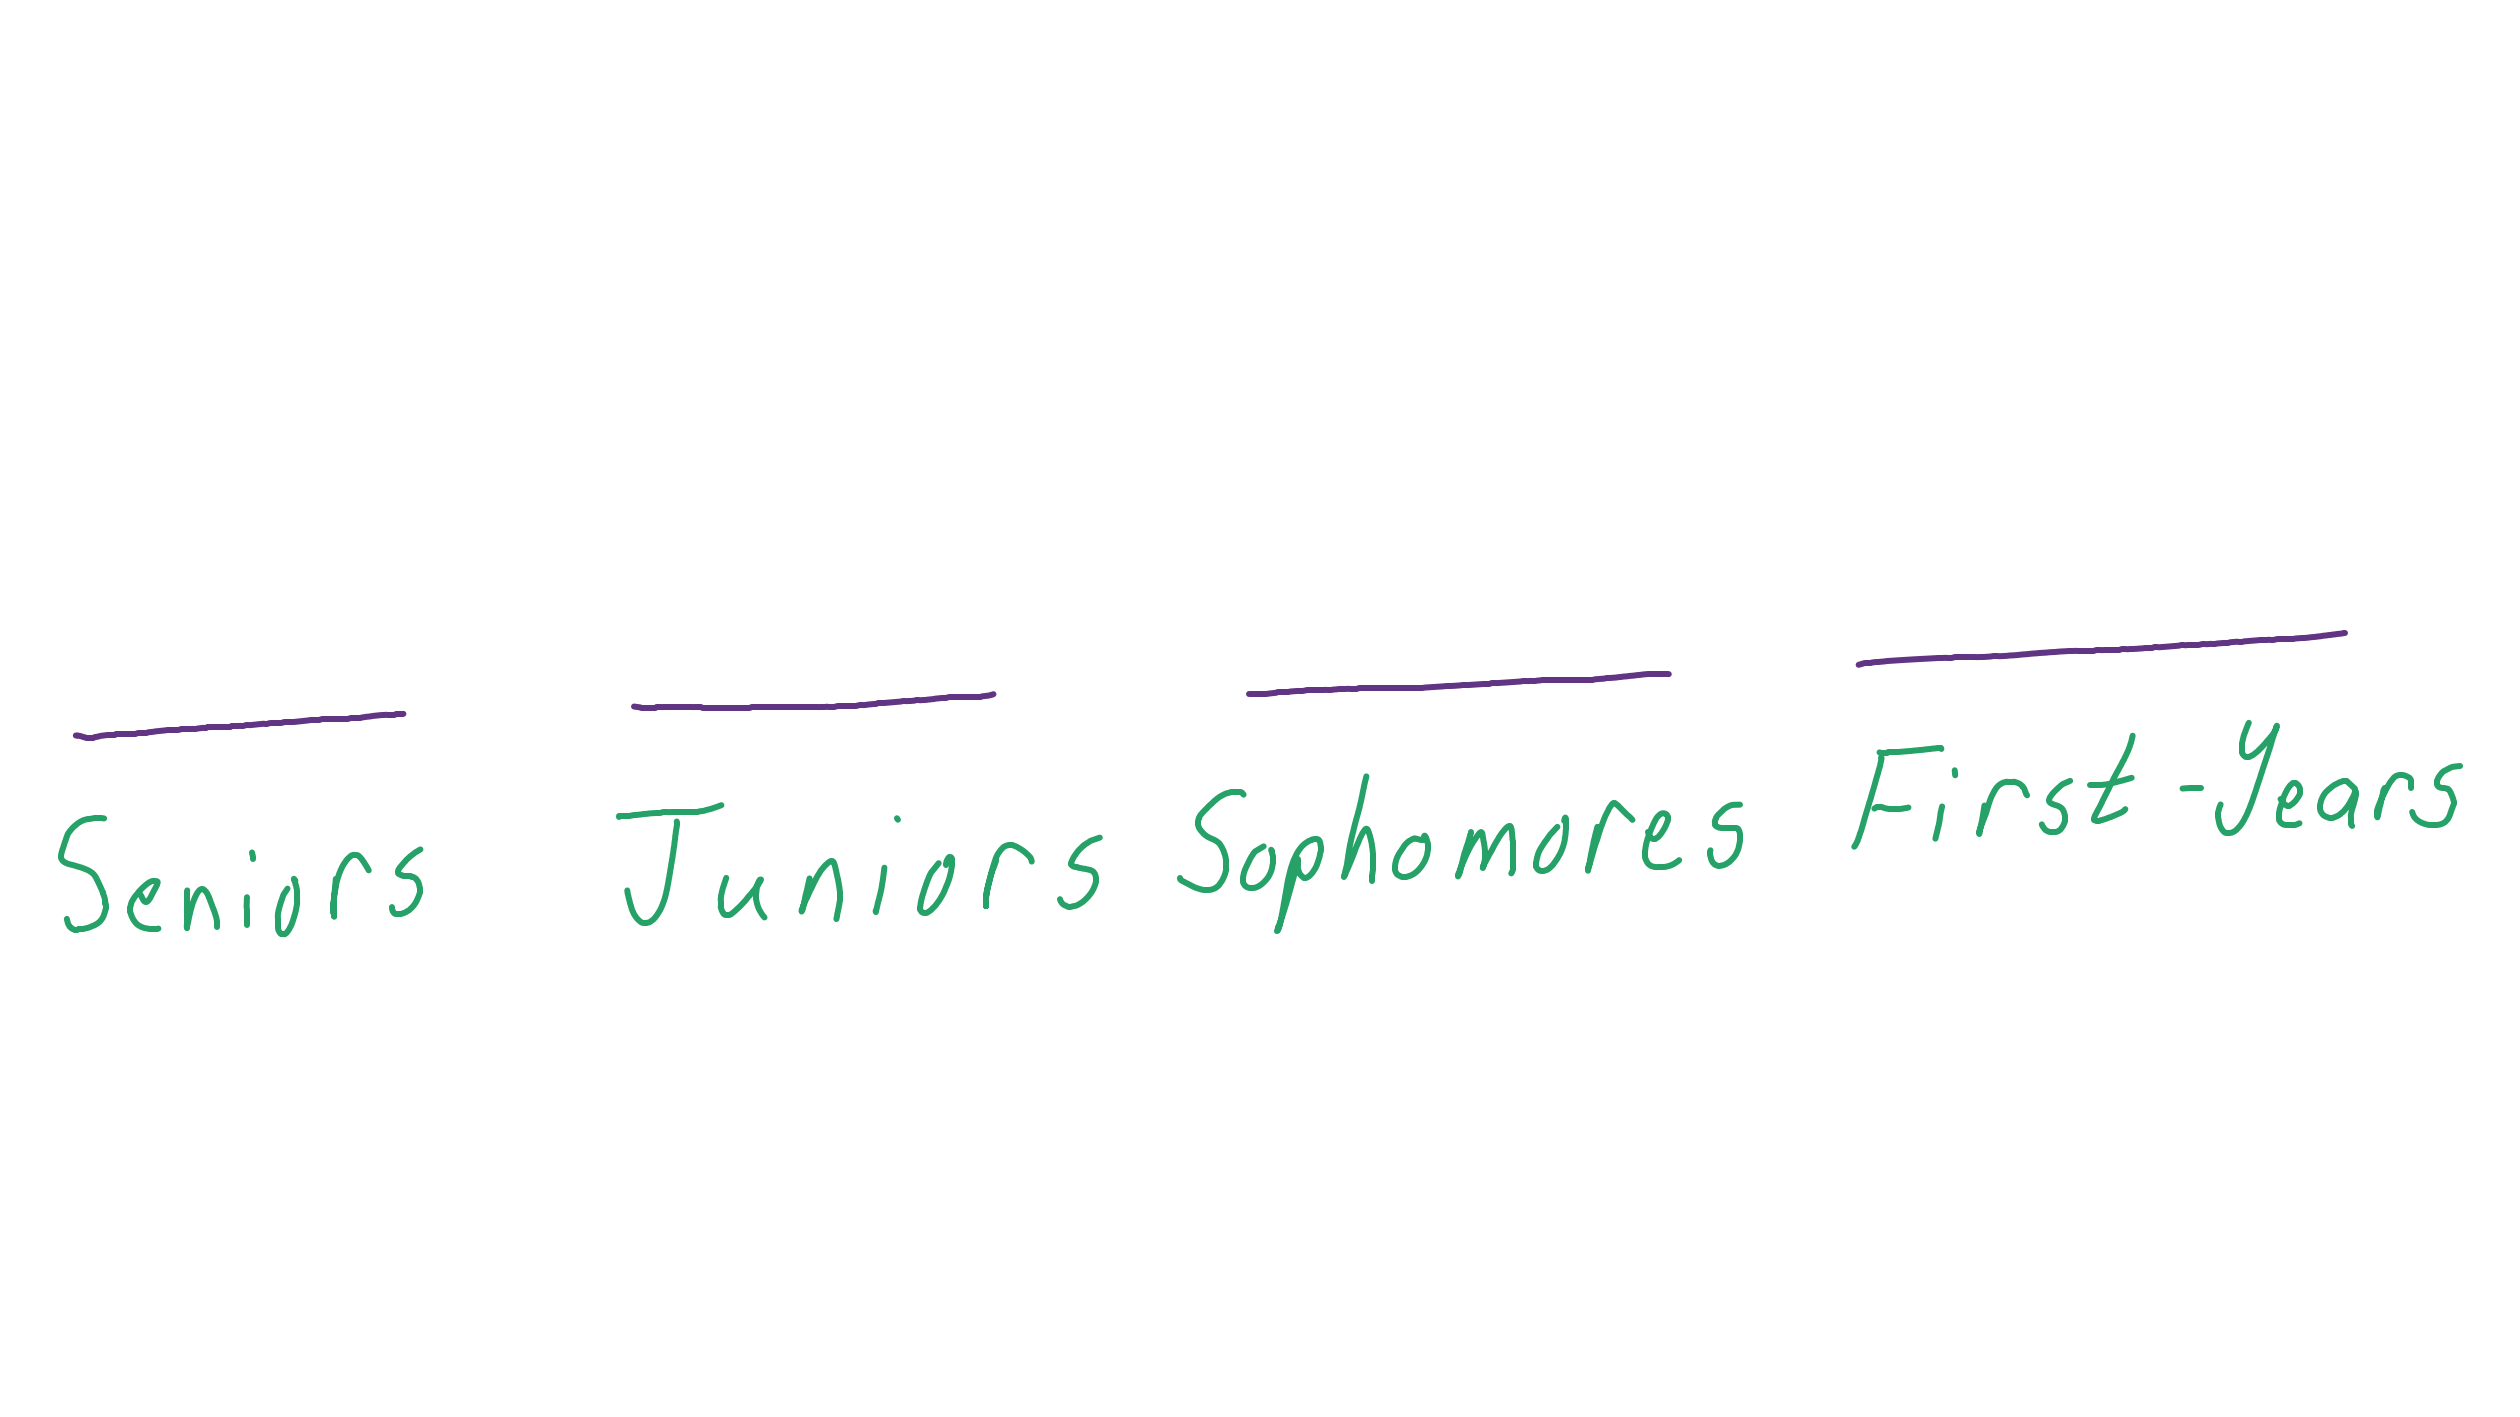 Seniors Juniors Sophomores First-years